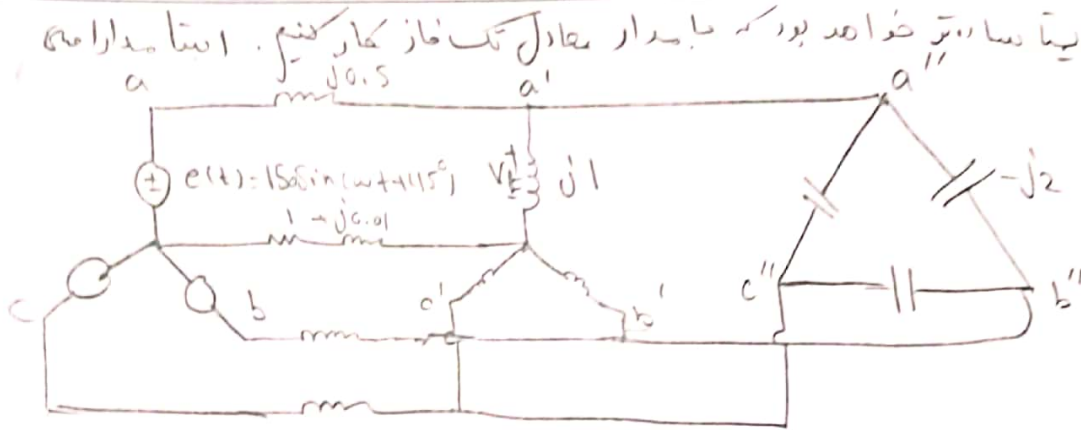 ساده‌تر خواهد بود که با مدار معادل تک فاز کار کنیم. ابتدا مدار را
a j0.5 a' a"
e(t)=150Sin(ωt+115°) V + - j1 -j2
1 j0.01
c b c' b' c" b"